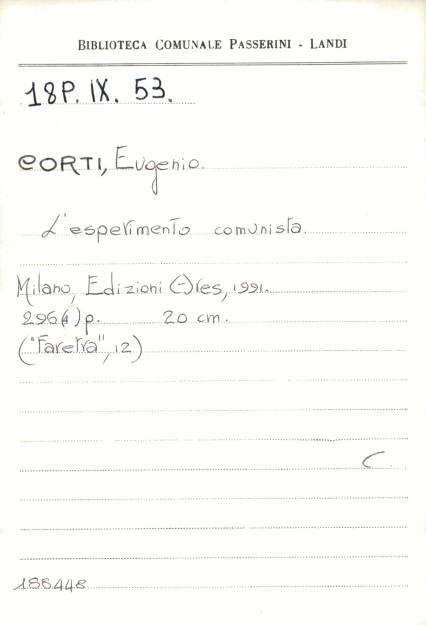 BIBLIOTECA COMUNALE PASSERINI - LANDI
18P. IX. 53.
CORTI, Eugenio.
L'esperimento comunista.
Milano, Edizioni Ares, 1991.
296(4)p. 20 cm.
("Faretra", 12)
C.
188448